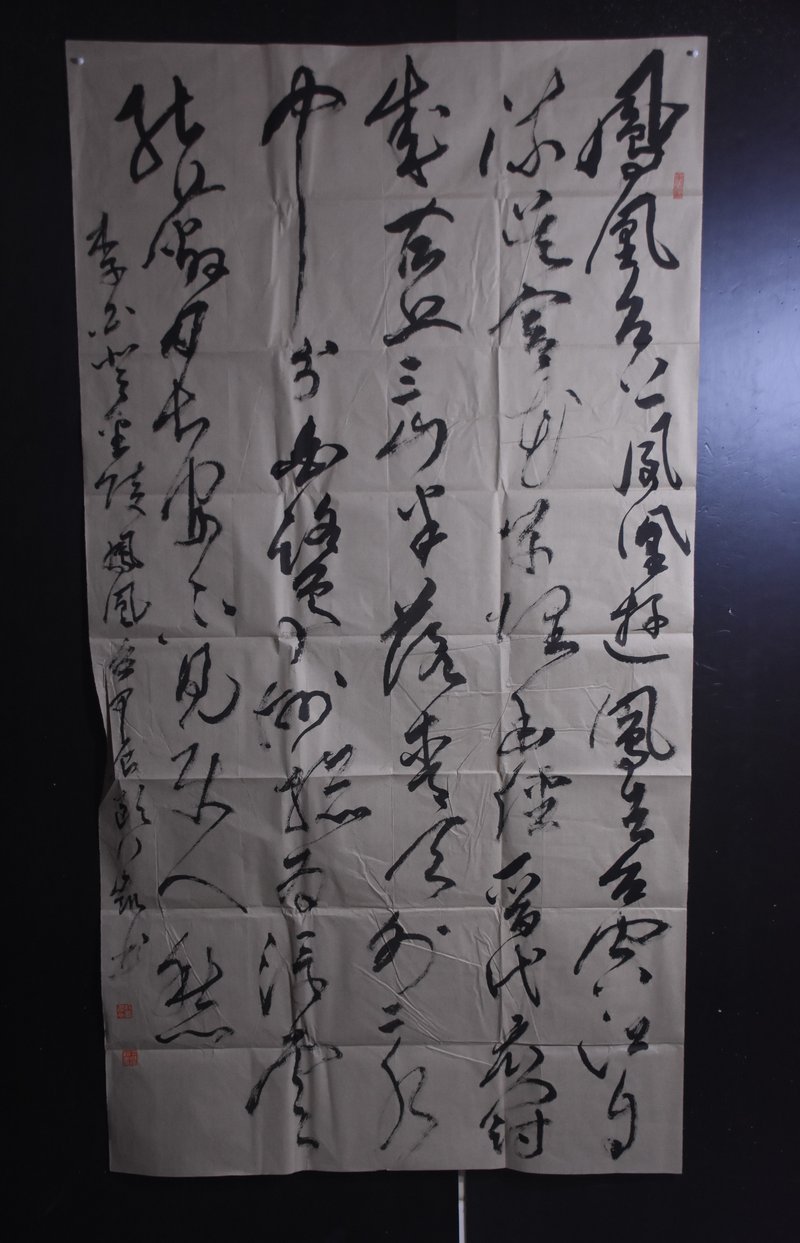 鳳凰台上鳳凰遊鳳去台空江自
流吴宫花草埋幽徑晋代衣冠
成古丘三山半落青天外二水
中分白鷺洲總為浮雲
能蔽日長安不見使人愁
李白登金陵鳳凰台甲辰